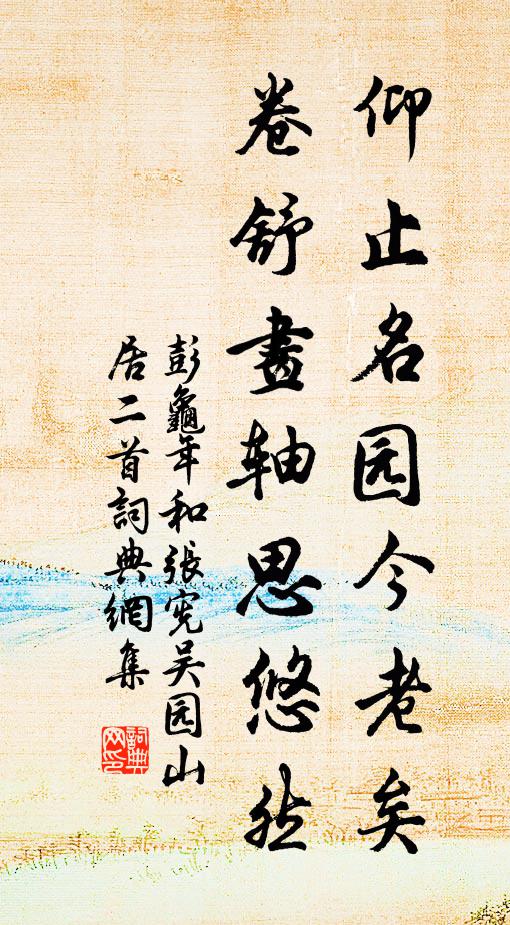 仰止名园今老矣
卷舒畫轴思悠然
彭龜年和張宪吴园山
居二首詞典網集
詞典
网印